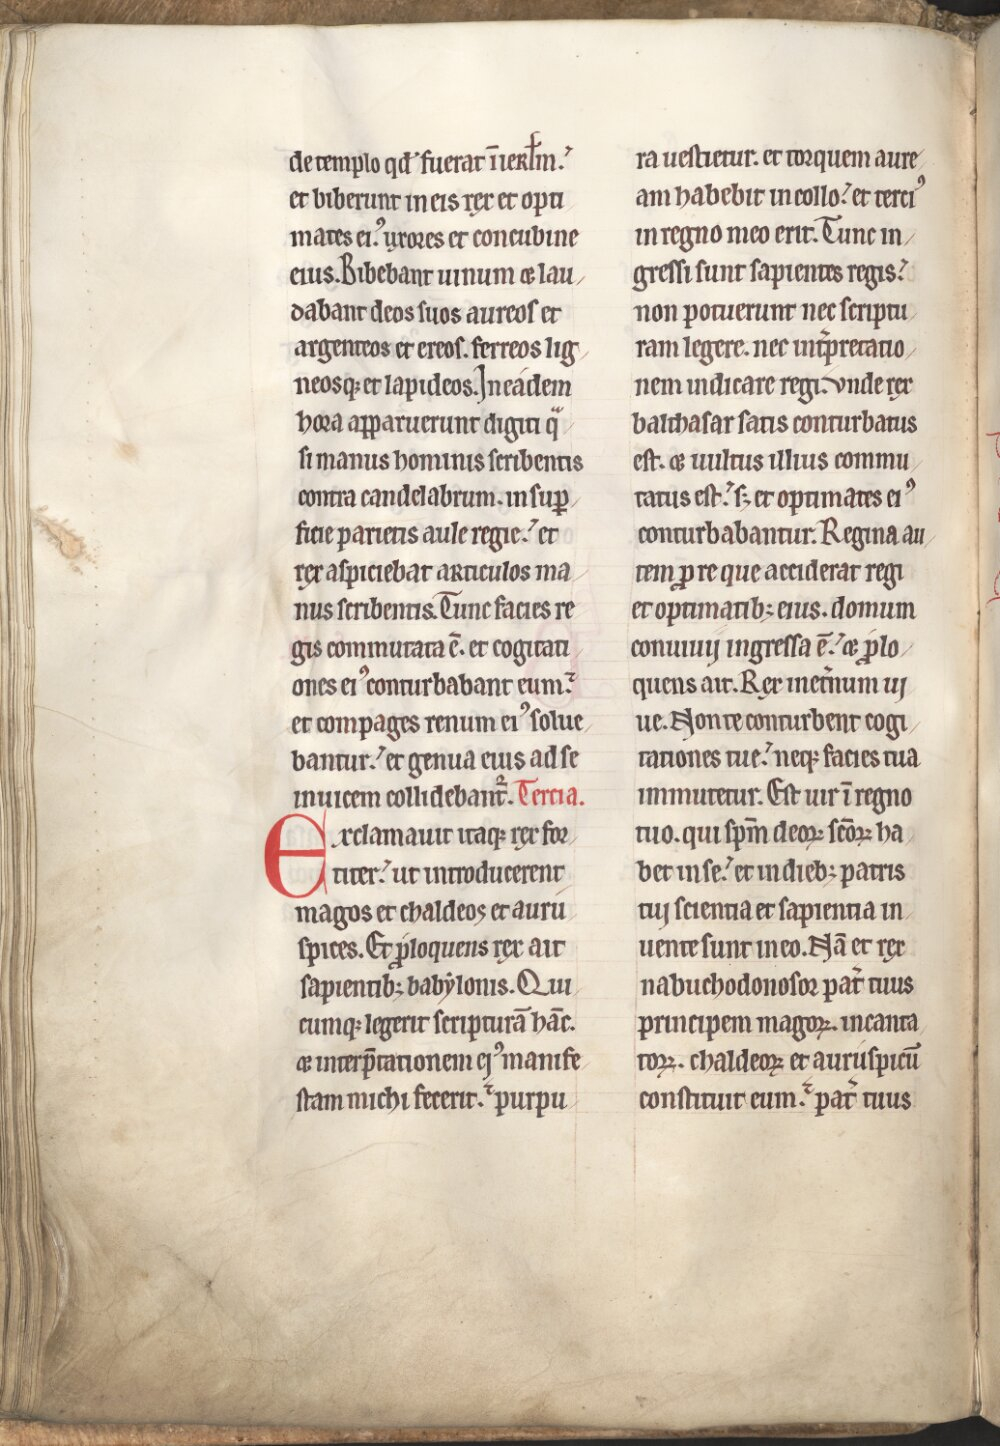 de templo qd̛ fuerat ı̄ ierl̄m.
et biberunt in eis rex et opti
mates eiꝰ. uxores et concubine
eius. Bibebant uinum ⁊ lau
dabant deos suos aureos et
argenteos et ereos. ferreos lig
neosqꝫ et lapideos. In eadem
hora apparuerunt digiti qͣ
si manus hominis scribentis
contra candelabrum. in suꝑ
ficie parietis aule regie. et
rex aspiciebat articulos ma
nus scribentis. Tunc facies re
gis commutata ē. et cogitati
ones eiꝰ conturbabant eum.
et compages renum eiꝰ solue
bantur. et genua eius ad se
inuicem collidebant̛. Tercia.
Exclamauit itaqꝫ rex for
titer. ut introducerent
magos et chaldeos et auru
spices. Et ꝓloquens rex ait
sapientibꝫ babẏlonis. Qui
cumqꝫ legerit scripturā hāc.
⁊ interp̄tationem ejꝰ manife
stam michi fecerit. purpu
ra uestietur. et torquem aure
am habebit in collo. et terciꝰ
in regno meo erit. Tunc in
gressi sunt sapientes regis.
non potuerunt nec scriptu
ram legere. nec int̛pretatio
nem indicare regi. vnde rex
balthasar satis conturbatus
est. ⁊ uultus illius commu
tatus est. sꝫ et optimates eiꝰ
conturbabantur. Regina au
tem ꝓ re que acciderat regi
et optimatibꝫ eius. domum
conuiuij ingressa ē. ⁊ ꝓlo
quens ait. Rex in et̛num ui
ue. Non te conturbent cogi
tationes tue. neqꝫ facies tua
immutetur. Est uir ı̄ regno
tuo. qui sp̄m deoꝝ sc̄oꝝ ha
bet in se. et in diebꝫ patris
tuj scientia et sapientia in
uente sunt in eo. Nā et rex
nabuchodonosor pat̛ tuus
principem magoꝝ. incanta
toꝝ. chaldeoꝝ et auruspicū
constituit eum. pat̛ tuus